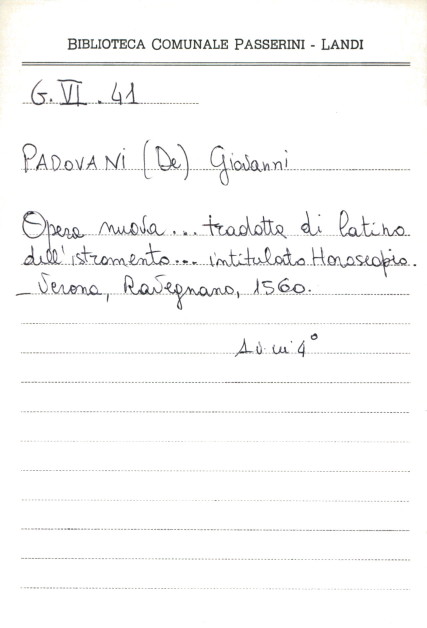 BIBLIOTECA COMUNALE PASSERINI - LANDI
G. VI . 41
PADOVANI (De) Giovanni
Opera nuova ... tradotta di latino
dell'istromento ... intitulato Horoscopio.
_ Verona, Ravegnano, 1560.
1 v. in 4°